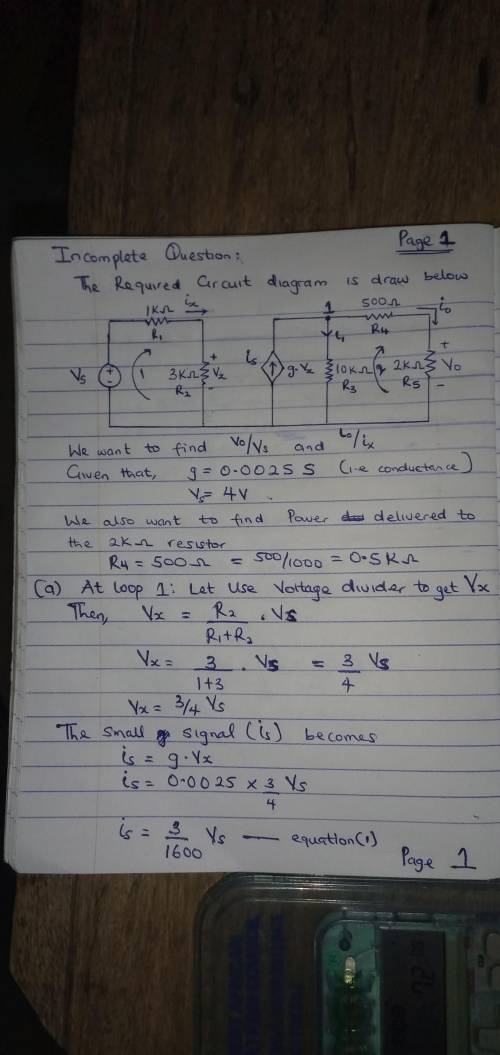 Page 1
Incomplete Question:
The Required Circuit diagram is draw below
1KΩ ix 1 500Ω io
R1 R4
Vs 1 3KΩ + Vx - R2 is g.Vx i1 10KΩ R3 2 2KΩ R5 + Vo -
We want to find Vo/Vs and io/ix
Given that, g = 0.0025 S (i-e conductance)
Vs = 4V.
We also want to find Power delivered to
the 2KΩ resistor
R4 = 500Ω = 500/1000 = 0.5KΩ
(a) At Loop 1: Let Use Voltage divider to get Vx
Then, Vx = R2/R1+R2 . Vs
Vx = 3/1+3 . Vs = 3/4 Vs
Vx = 3/4 Vs
The small signal (is) becomes
is = g.Vx
is = 0.0025 x 3/4 Vs
is = 3/1600 Vs — equation(1)
Page 1